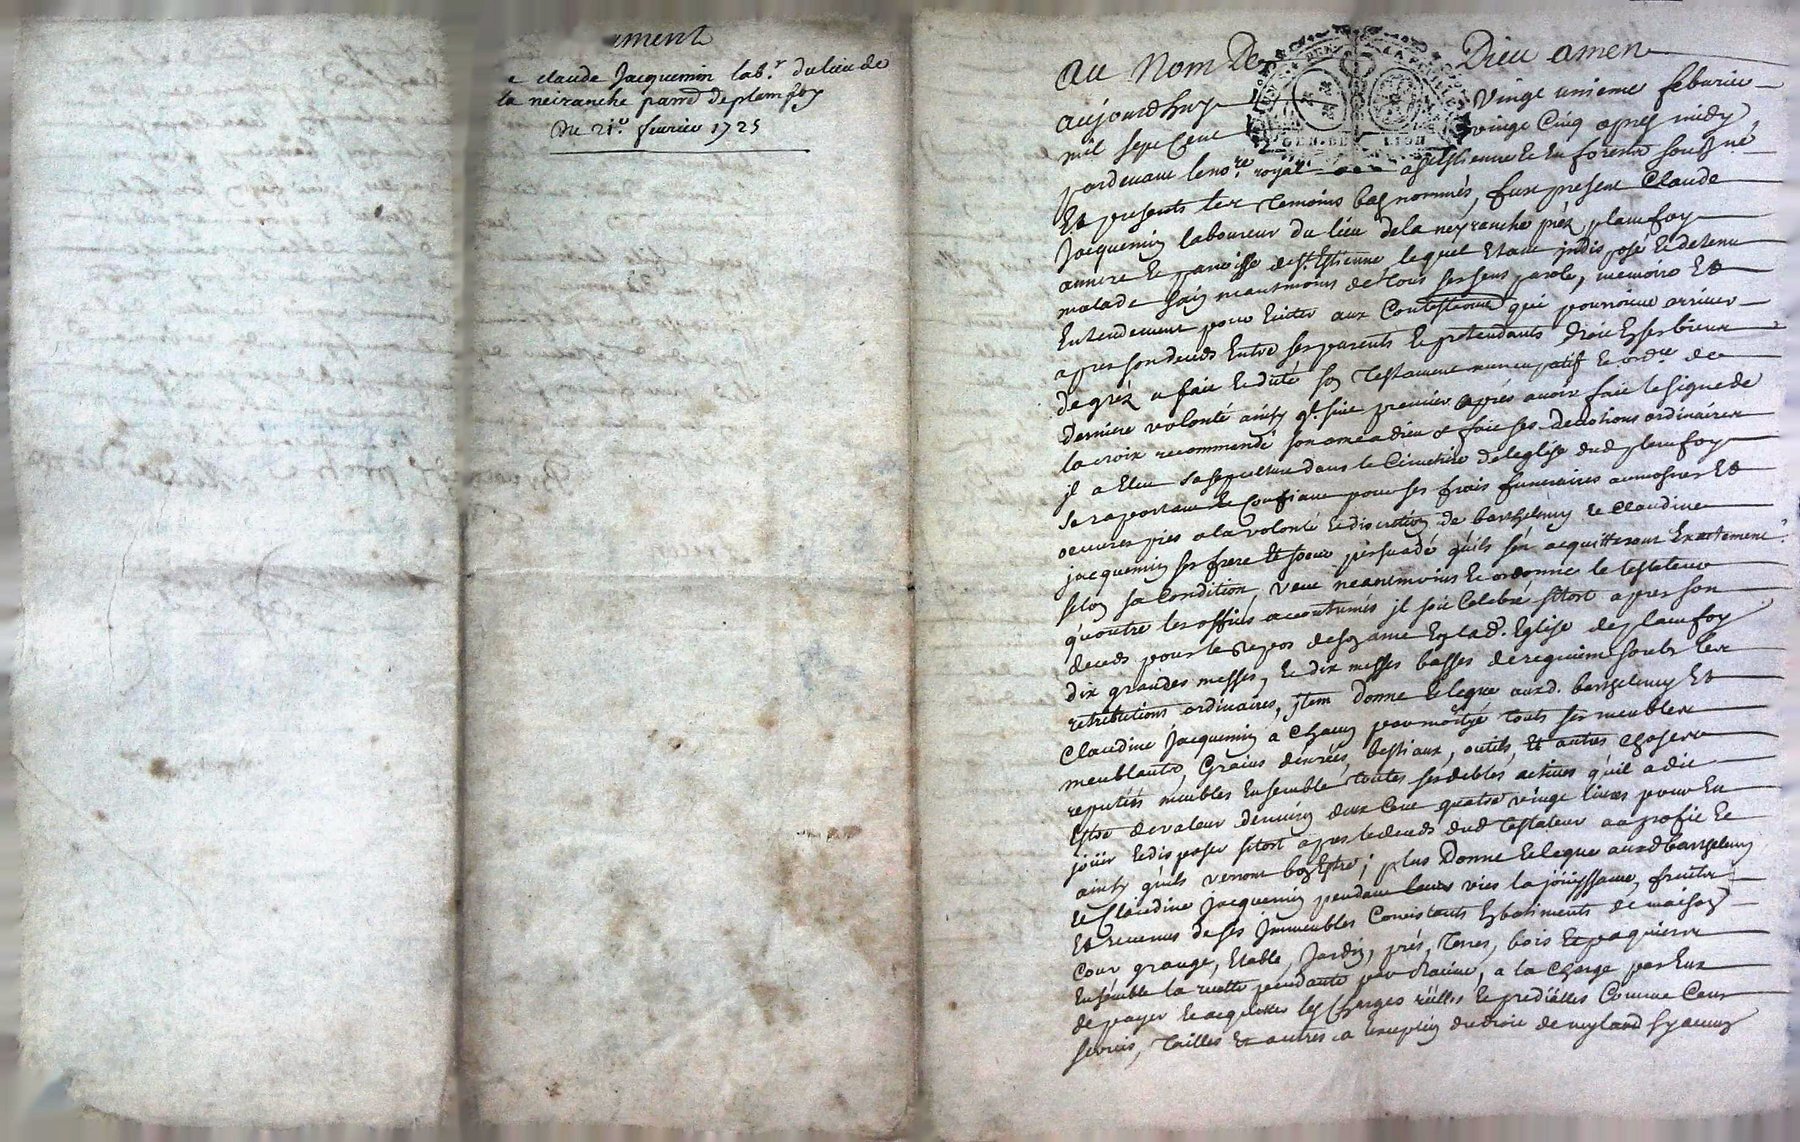 ment
claude Jacquemin lab.r du lieu de
la neiranche parr.d de plamfoy
Du 21.e fevrier 1725
au Nom De Dieu amen
aujourdhuy vingt unieme febvrier
mil sept Cent vingt Cinq apres midy,
pardevant le no.re royal a St Estienne en forest soussigné
Et presents les temoins bas nommés, fut present Claude
Jacquemin laboureur du lieu de la neyranche prez plamfoy
annexe et parroisse de St. Estienne lequel Etant indisposé et detenu
malade sain neantmoins de tous ses sens parole, memoire Et
Entendement pour Eviter aux Contestions qui pourroient arriver
apres son deceds Entre ses parents et pretendants droit En ses biens
de gréz a fait et dicté son testament nuncupatif et ord.re de
derniere volonté ainsy q.l suit premier aprés avoir fait le signe de
la croix recommandé son ame a dieu et fait ses devotions ordinaires
il a Eleu sa sepulture dans le Cimetiere de leglise dud plamfoy
se raportant et Confiant pour ses frais funeraires aumosnes Et
oeuvres pies a la volonté et discretion de barthelemy et Claudine
jacquemin ses frere et soeur persuadé quils sen acquitteront Exactement
selon sa Condition, veut neantmoins et ordonne le testateur
qu'outre les offices accoutumés il soit Celebré sitost apres son
deceds pour le repos de son ame En lad. Eglise de plamfoy
dix grandes messes, et dix messes basses de requiem soubs les
retributions ordinaires, jtem donne et legue aux d. barthelemy Et
Claudine Jacquemin a chacun par moitié touts ses meubles
meublants, Grains denrées, bestiaux, outils, Et autres choses
reputées meubles Ensemble toutes ses debtes actives quil a dit
Estre de valeur Denviron deux Cent quatre vingt livres pour En
joüir et disposer sitost apres le deceds dud testateur au profit et
ainsy quils verront bon Estre; plus Donne et legue auxd barthelemy
et Claudine Jacquemin pendant leurs vies la joüyssance, fruits
Et revenus de ses Jmmeubles Consistants En batiments de maison
Cour grange, Etable, Jardin, prés, terres, bois et paquiers
Ensemble la recolte pendante par racine, a la charge par Eux
de payer et acquitter les Charges réelles et prediales Comme Cens
servis, tailles Et autres a lexception du droit de